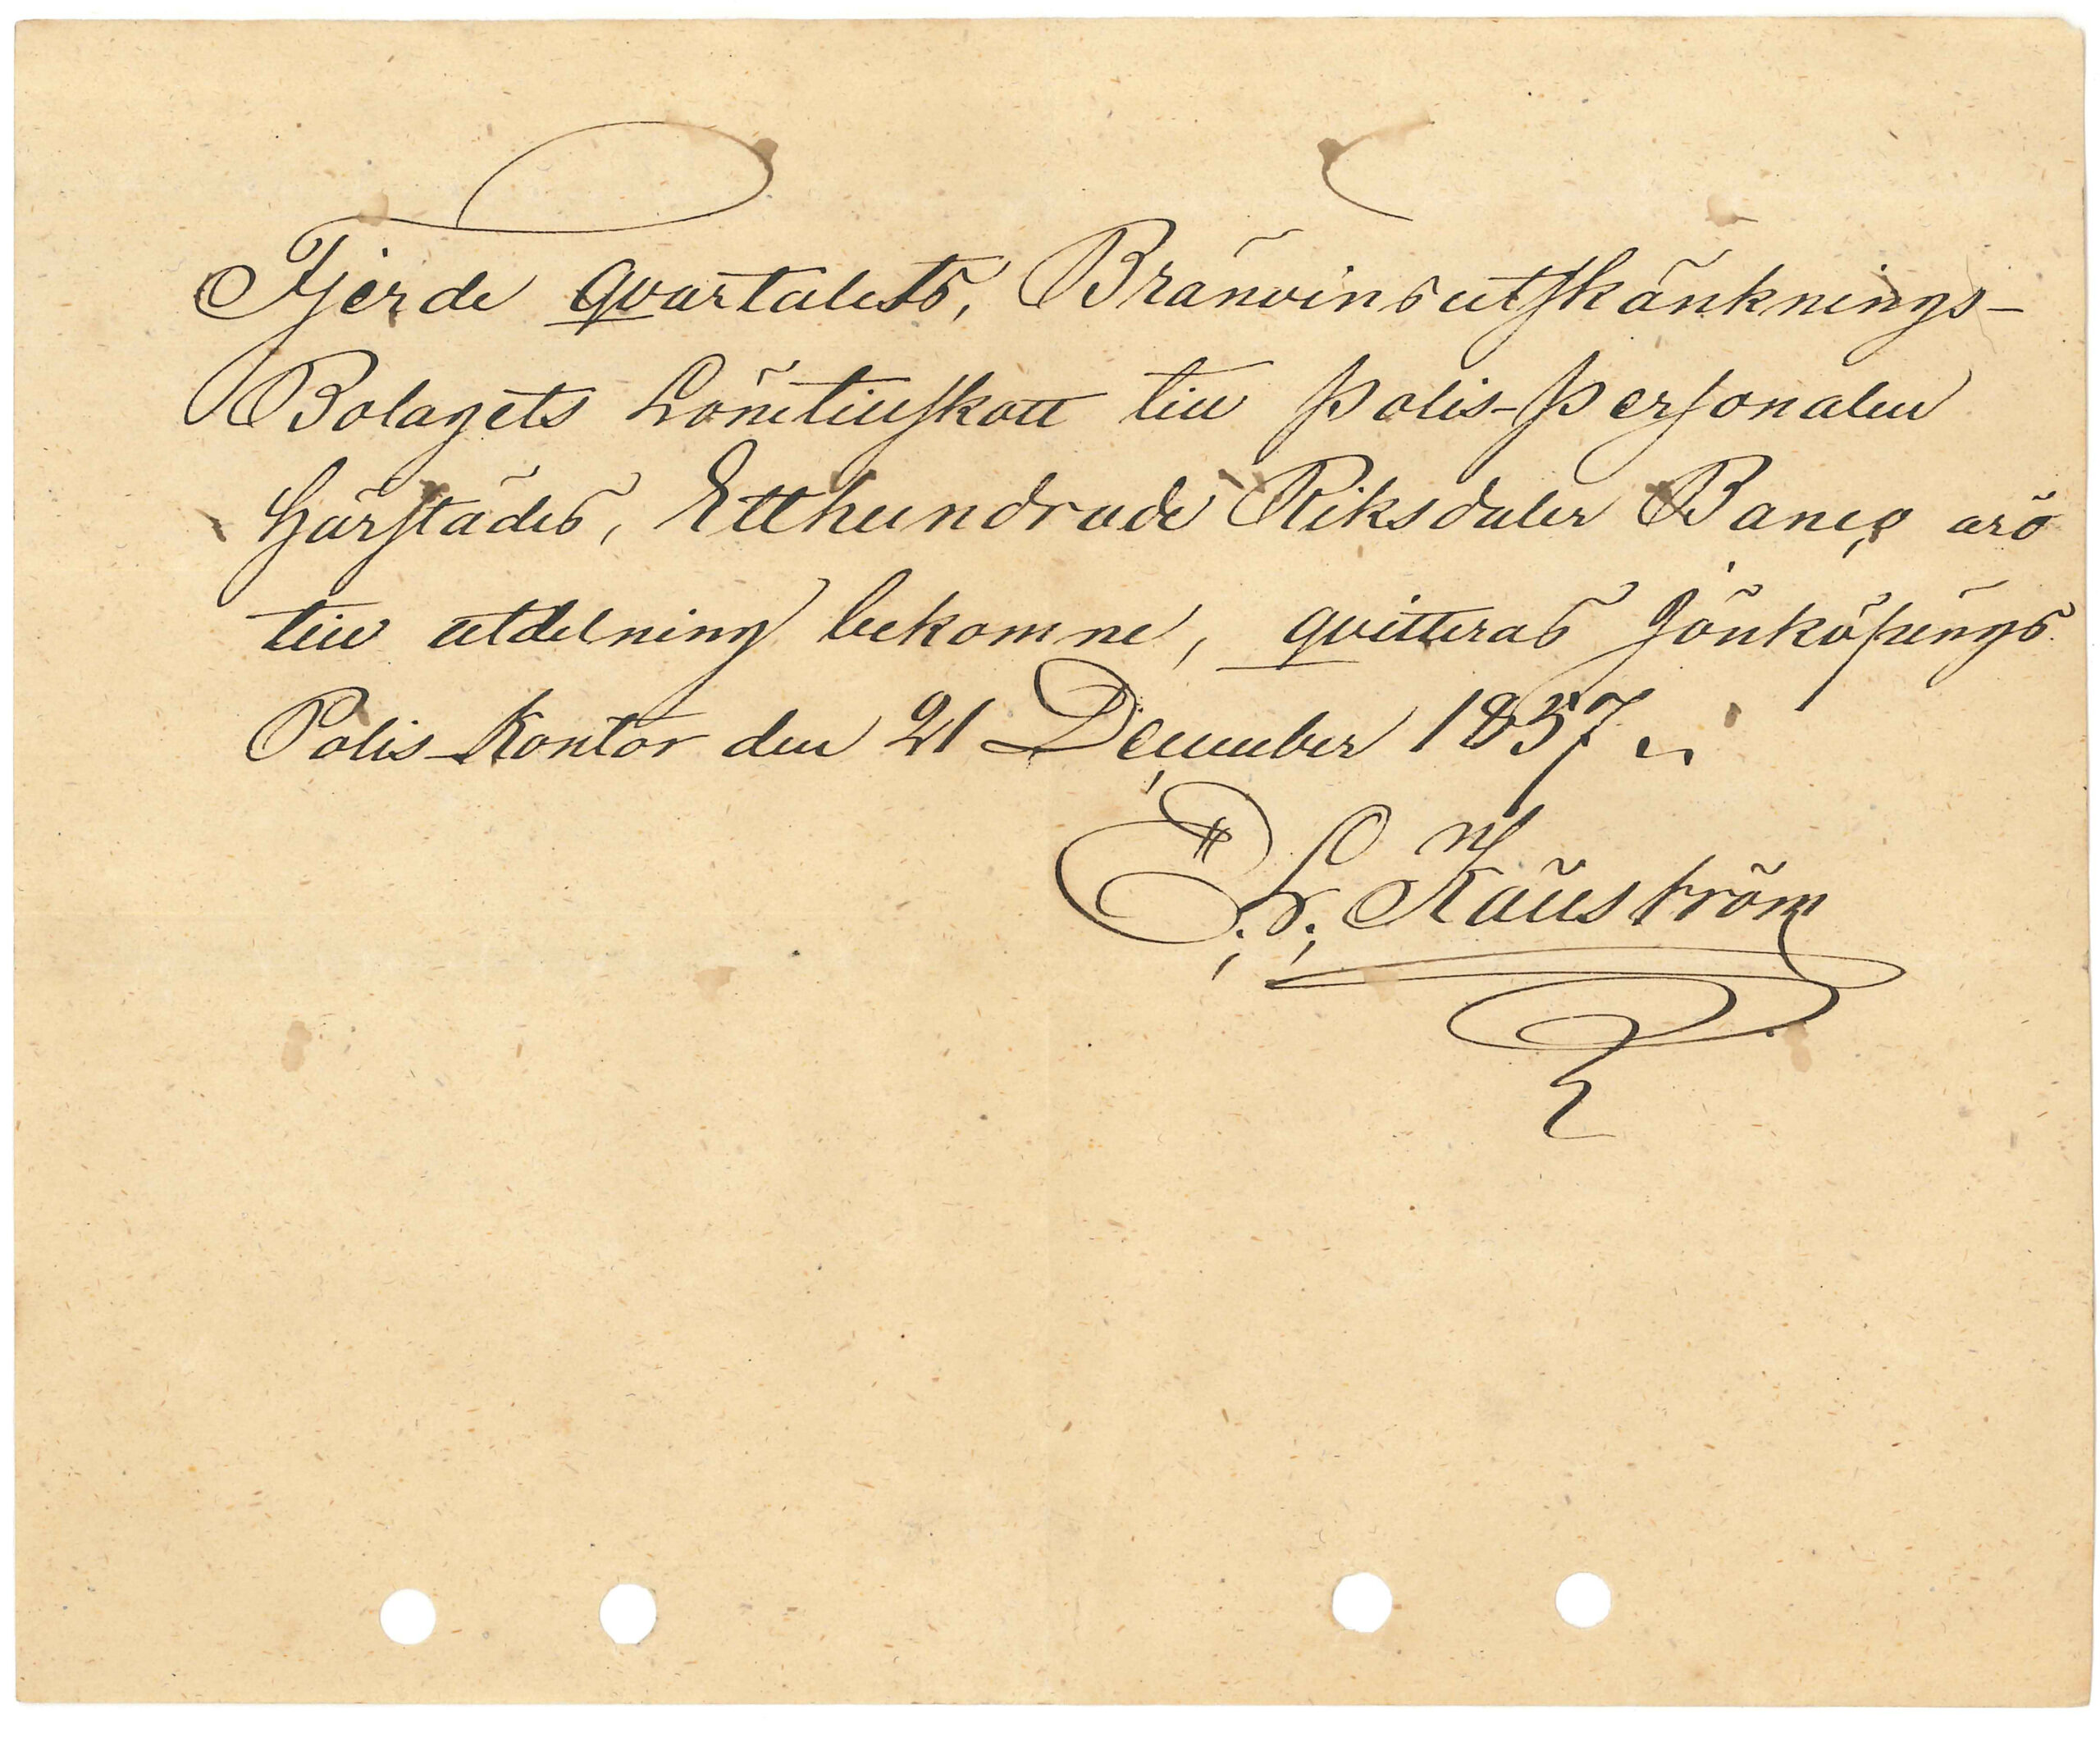 Fjerde qvartalets, Bränvinsutskänknings-
Bolagets Lönetillskott till Polis-Personalen
härstädes, Etthundrade Riksdaler Banco äro
till utdelning bekomne, qvitteras Jönköpings
Polis-Kontor den 21 December 1857